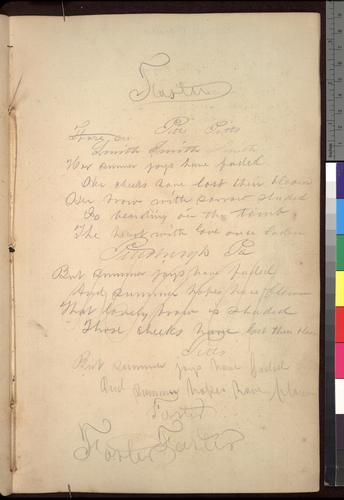 Foster
Pitts Pitts
Smith Smith Smith
Her summer joys have faded
Her cheeks have lost their bloom
Her brow with sorrow shaded
Is bending oer the tomb
The heart with love once laden
Pittsburgh Pa
But summer joys have faded
And summer hopes have flown
That lovely brow is shaded
Those cheeks have lost their
Pitts
But summer joys have faded
And summer hopes have flown
Foster
Foster Foster